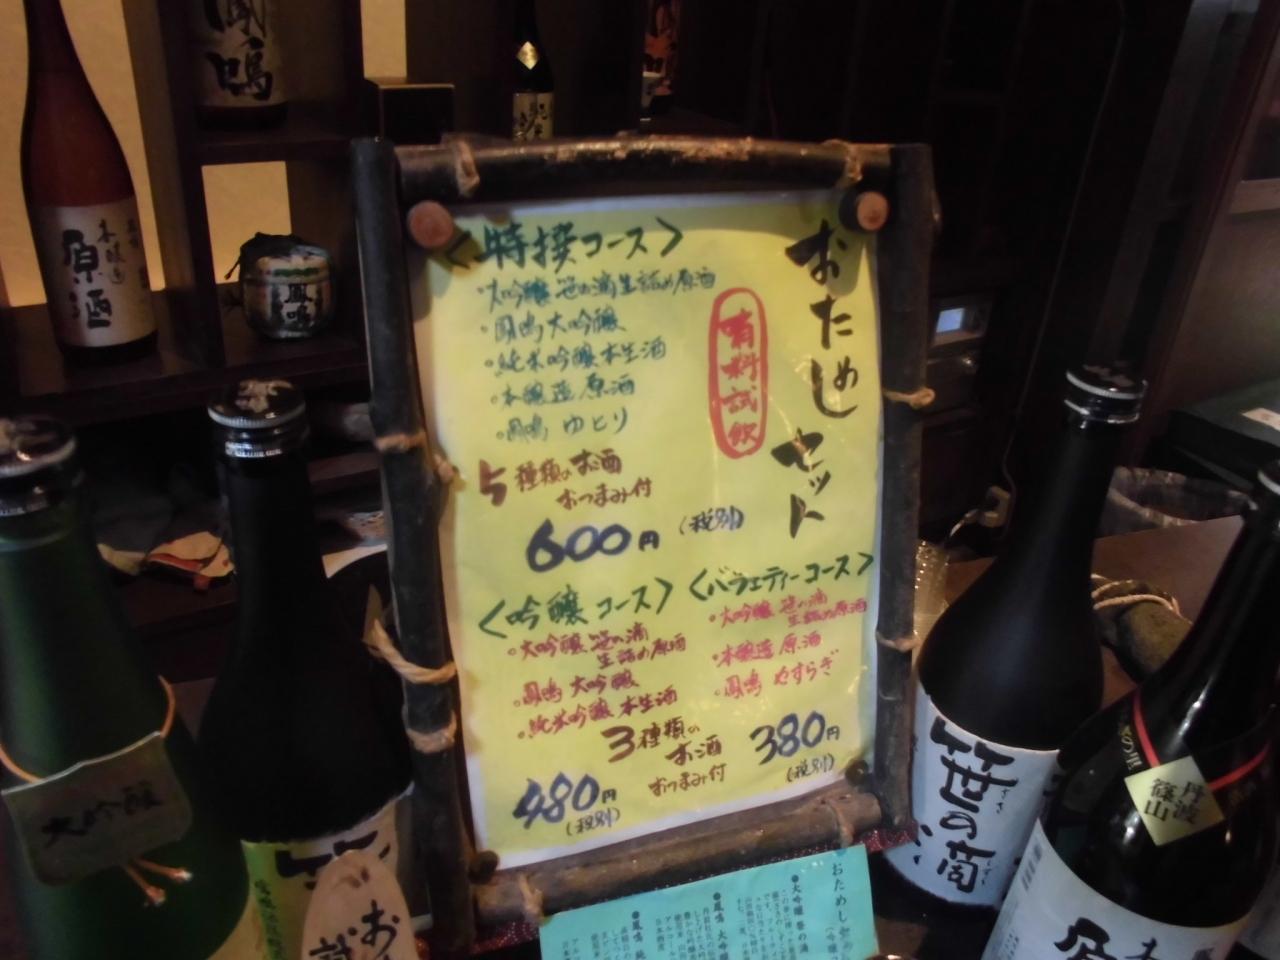 おためしセット
有料試飲
〈特撰コース〉
・大吟醸 笹の滴生詰め原酒
・鳳鳴 大吟醸
・純米吟醸 本生酒
・本醸造 原酒
・鳳鳴 ゆとり
5種類のお酒
おつまみ付
600円(税別)
〈吟醸コース〉
・大吟醸 笹の滴
生詰め原酒
・鳳鳴 大吟醸
・純米吟醸 本生酒
〈バラエティーコース〉
・大吟醸 笹の滴
生詰め原酒
・本醸造 原酒
・鳳鳴 やすらぎ
3種類の
お酒
おつまみ付
480円
(税別)
380円
(税別)
鳳鳴
本醸造
原酒
鳳鳴
大吟醸
笹の滴
丹波
篠山
おためし
●大吟醸 笹の滴
●鳳鳴 大吟醸